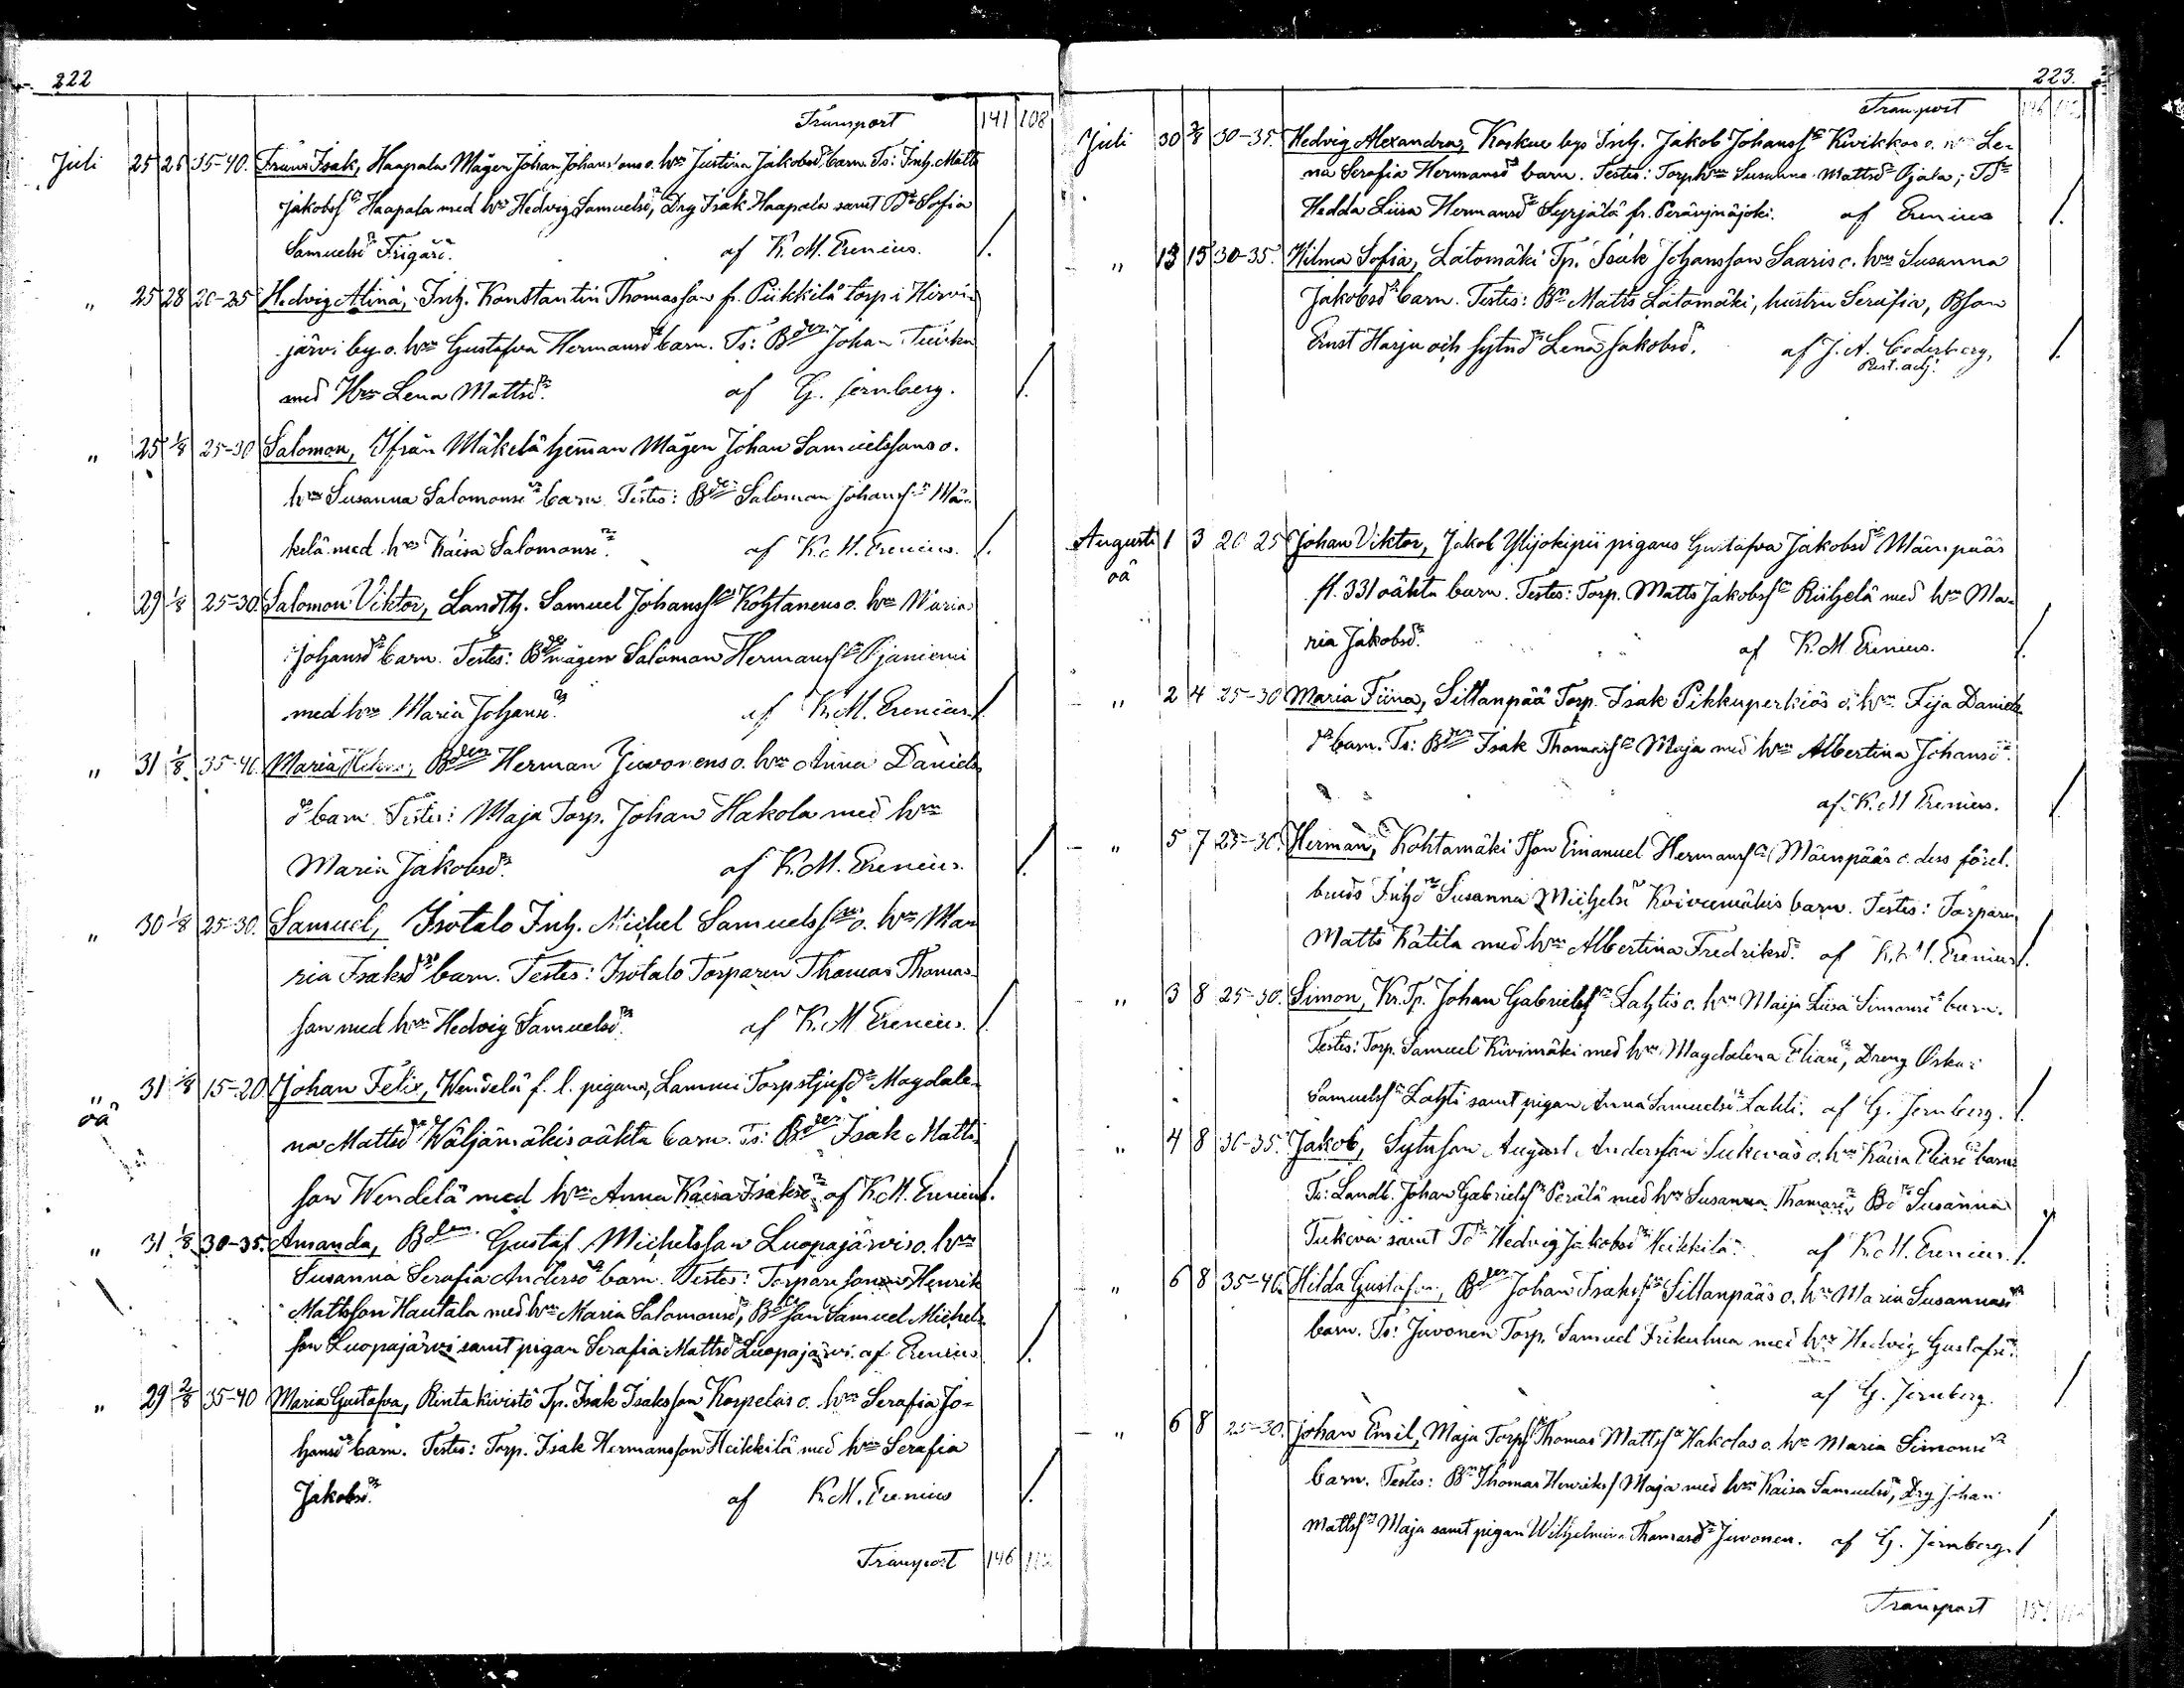 222
Transport 141 108
Juli 25 26 35-40. Frans Isak, Haapala Mågen Johan Johanssons o. hru Justina Jakobsd:s barn. Ts: Inh. Matts
Jakobss:n Haapala med hru Hedvig Samuelsd:r, Drg Isak Haapala samt Bd:r Sofia
Samuelsd:r Frigård. af K. M. Erenius. /.
" 25 28 20-25 Hedvig Alina, Inh. Konstantin Thomasson fr. Piikkilä torp i Hirvi-
järvi by o. hru Gustafva Hermansd:s barn. Ts: Bden Johan Tuiska
med Hru Lena Mattsd:r. af G. Jernberg. /.
" 25 1/8 25-30 Salomon, Ifrån Mäkelä hemman Mågen Johan Samuelssons o.
hru Susanna Salomonsd:rs barn. Testes: Bden Saloman Johanss:n Mä-
kelä med hru Kaisa Salomonsd:r. af K. M. Erenius. /.
29 1/8 25-30. Salomon Viktor, Landth. Samuel Johanss:n Kohtanens o. hru Maria
Johansd:s barn. Testes: Bdemågen Saloman Hermanss:n Ojaniemi
med hru Maria Johansd:r. af K. M. Erenius. /.
" 31 1/8 35-40. Maria, Bden Herman Juvonens o. hru Anna Daniels-
d:s barn. Testes: Maja Torp. Johan Hakola med hru
Maria Jakobsd:r. af K. M. Erenius. /.
" 30 1/8 25-30. Samuel, Isotalo Inh. Michel Samuelss:ns o. hru Ma-
ria Isaksd:rs barn. Testes: Isotalo Torparen Thomas Thomas-
son med hru Hedvig Samuelsd:r. af K. M Erenius. /.
" oä 31 1/8 15-20. Johan Felix, Wendelä f. l. pigans, Lammi Torpstjufd:r Magdale-
na Mattsd:r Wäljämäkis oäkta barn. Ts: Bden Isak Matts-
son Wendelä med hru Anna Kaisa Isaksd:r. af K. M. Erenius. /.
" 31 1/8 30-35. Amanda, Bden Gustaf Michelsson Luopajärvis o. hru
Susanna Serafia Andersd:s barn. Testes: Torparesonen Henrik
Mattsson Hautala med hru Maria Salamonsd:r, Bdeson Samuel Michels-
son Luopajärvi samt pigan Serafia Mattsd:r Luopajärvi. af Erenius /.
" 29 2/8 35-40 Maria Gustafva, Rintakivistö Tp. Isak Isaksson Korpelas o. hru Serafia Jo-
hansd:s barn. Testes: Torp. Isak Hermansson Heikkilä med hru Serafia
Jakobsd:r. af K. M. Erenius /.
Transport 146 112
223.
Transport 146 112
Juli 30 2/8 30-35. Hedvig Alexandra, Koskue bys Inh. Jakob Johanss:n Kivikkos o. hru Le-
na Serafia Hermansd:s barn. Testes: Torphru Susanna Mattsd:r Ojala; Td:r
Hedda Liisa Hermansd:r Syrjälä fr. Peräsejnäjoki. af Erenius /.
" 13 15 30-35. Hilma Sofia, Latomäki Tp. Isak Johansson Saaris o. hru Susanna
Jakobsd:s barn. Testes: Bn Matts Latomäki, hustru Serafia, Bson
Ernst Harju och sytnd:r Lena Jakobsd. af J. A. Cederberg, /.
Past. adj.
Augusti oä 1 3 20-25 Johan Viktor, Jakob Ylijokipii pigans Gustafva Jakobsd:r Mäenpääs
fl. 331 oäkta barn. Testes: Torp. Matts Jakobss:n Riihelä med hru Ma-
ria Jakobsd:r. af K. M Erenius. /.
" 2 4 25-30 Maria Fiina, Sillanpää Torp. Isak Pikkuperkiös o. hru Fija Daniels-
d:s barn. Ts: Bden Isak Thomass:n Maja med hru Albertina Johansd:r.
af K. M Erenius. /
" 5 7 25-30. Herman, Kohtamäki Tson Emanuel Hermanss:n Mäenpääs o. dess förel.
bruds Inhd:r Susanna Michelsd:r Koivumäkis barn. Testes: Torparen
Matts Katila med hru Albertina Fredriksd:r. af K. M. Erenius /.
" 3 8 25-30. Simon, Kr. Tp. Johan Gabrielss:n Lahtis o. hru Maija Liisa Simonsd:s barn.
Testes: Torp. Samuel Kivimäki med hru Magdalena Eliasd:r, Dreng Oskar
Samuelss:n Lahti samt pigan Anna Samuelsd:r Lahti. af G. Jernberg. /.
" 4 8 30-35. Jakob, Sytnson August Andersson Tukevas o. hru Kaisa Eliasd:s barn.
Ts: Landb. Johan Gabrielss:n Perälä med hru Susanna Thomasd:r, Bd:r Susanna
Tukeva samt Td:r Hedvig Jakobsd:r Heikkilä. af K. M. Erenius. /.
" 6 8 35-40. Hilda Gustafva, Bden Johan Isakss:n Sillanpääs o. hru Maria Susanna
barn. Ts: Juvonen Torp. Samuel med hru Hedvig Gustafsd:r.
af G. Jernberg. /
" 6 8 25-30. Johan Emil, Maja Torps:n Thomas Mattss:n Hakolas o. hru Maria Simonsd:s
barn. Testes: Bn Thomas Henrikss Maja med hru Kaisa Samuelsd:r, Drg Johan
Mattss:n Maja samt pigan Wilhelmina Thomasd:r Juvonen. af G. Jernberg. /
Transport